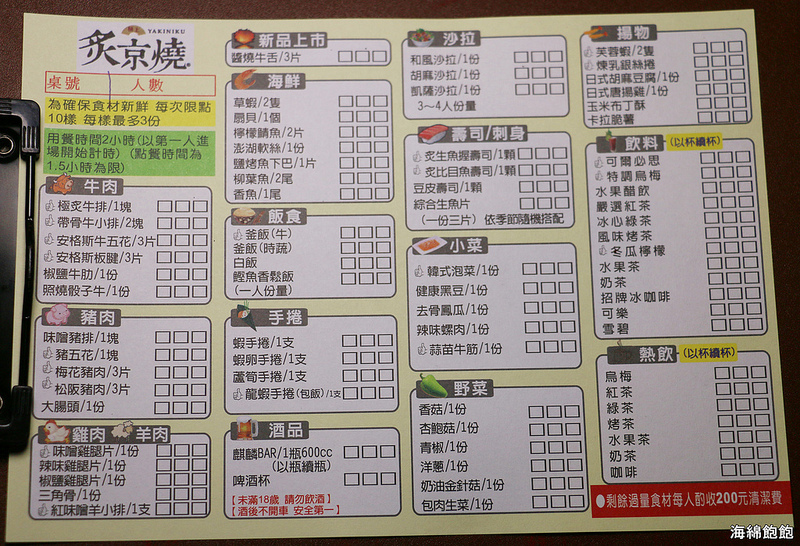 YAKINIKU
炙京燒
桌號 人數
為確保食材新鮮 每次限點
10樣 每樣最多3份
用餐時間2小時(以第一人進
場開始計時) (點餐時間為
1.5小時為限)
牛肉
極炙牛排/1塊
帶骨牛小排/2塊
安格斯牛五花/3片
安格斯板腱/3片
椒鹽牛肋/1份
照燒骰子牛/1份
豬肉
味噌豬排/1塊
豬五花/1塊
梅花豬肉/3片
松阪豬肉/3片
大腸頭/1份
雞肉 羊肉
味噌雞腿片/1份
辣味雞腿片/1份
椒鹽雞腿片/1份
三角骨/1份
紅味噌羊小排/1支
新品上市
醬燒牛舌/3片
海鮮
草蝦/2隻
扇貝/1個
檸檬鯖魚/2片
澎湖軟絲/1份
鹽烤魚下巴/1片
柳葉魚/2尾
香魚/1尾
飯食
釜飯(牛)
釜飯(時蔬)
白飯
鰹魚香鬆飯
(一人份量)
手捲
蝦手捲/1支
蝦卵手捲/1支
蘆筍手捲/1支
龍蝦手捲(包飯)/1支
酒品
麒麟BAR/1瓶600cc
(以瓶續瓶)
啤酒杯
【未滿18歲 請勿飲酒】
【酒後不開車 安全第一】
沙拉
和風沙拉/1份
胡麻沙拉/1份
凱薩沙拉/1份
3～4人份量
壽司/刺身
炙生魚握壽司/1顆
炙比目魚壽司/1顆
豆皮壽司/1顆
綜合生魚片
(一份三片) 依季節隨機搭配
小菜
韓式泡菜/1份
健康黑豆/1份
去骨鳳瓜/1份
辣味螺肉/1份
蒜苗牛筋/1份
野菜
香菇/1份
杏鮑菇/1份
青椒/1份
洋蔥/1份
奶油金針菇/1份
包肉生菜/1份
揚物
芙蓉蝦/2隻
煉乳銀絲捲
日式胡麻豆腐/1份
日式唐揚雞/1份
玉米布丁酥
卡拉脆薯
飲料 (以杯續杯)
可爾必思
特調烏梅
水果醋飲
嚴選紅茶
冰心綠茶
風味烤茶
冬瓜檸檬
水果茶
奶茶
招牌冰咖啡
可樂
雪碧
熱飲 (以杯續杯)
烏梅
紅茶
綠茶
烤茶
水果茶
奶茶
咖啡
●剩餘過量食材每人酌收200元清潔費
海綿飽飽